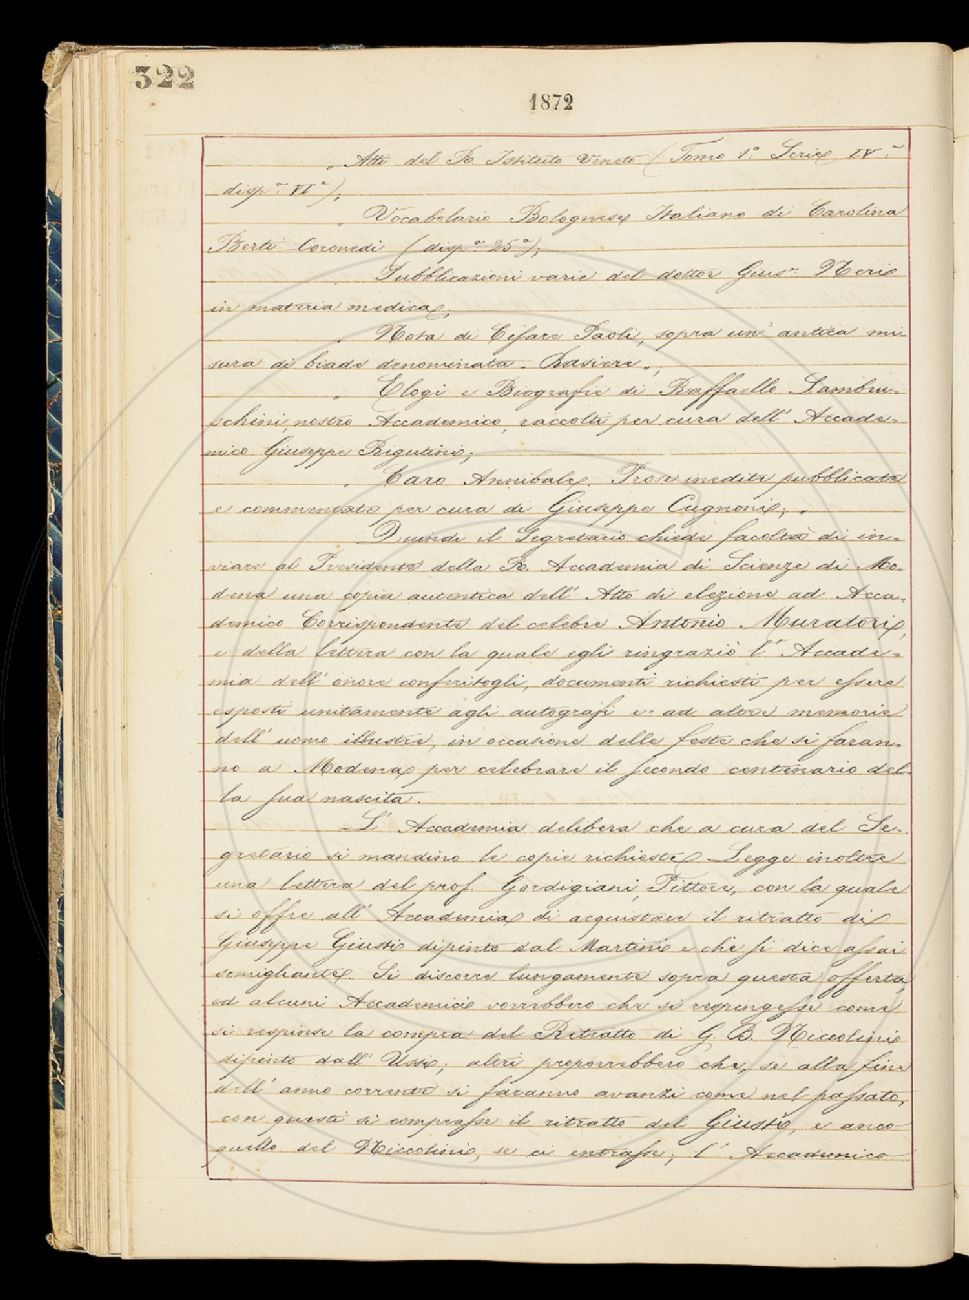 322
1872
„ Atti del R. Istituto Veneto (Tomo 1.° Serie IV.a
disp.a VI.a);
„ Vocabolario Bolognese Italiano di Carolina
Berti Coronedi (disp.a 25.a);
„ Pubblicazioni varie del dottor Gius.e Neri
in materia medica;
„ Nota di Cesare Paoli, sopra un' antica mi-
sura di biade denominata „ Rasiere „;
„ Elogi e Biografie di Raffaello Lambru-
schini, nostro Accademico, raccolti per cura dell' Accade-
mico Giuseppe Rigutini;
„ Caro Annibale. Prose inedite pubblicate
e commentate per cura di Giuseppe Cugnoni;
Quindi il Segretario chiede facoltà di in-
viare al Presidente della R. Accademia di Scienze di Mo-
dena una copia autentica dell' Atto di elezione ad Acca-
demico Corrispondente del celebre Antonio Muratori,
e della lettera con la quale egli ringraziò l' Accade-
mia dell' onore conferitogli, documenti richiesti per essere
esposti unitamente agli autografi e ad altre memorie
dell' uomo illustre, in occasione delle feste che si faran-
no a Modena per celebrare il secondo centenario del-
la sua nascita.
L' Accademia delibera che a cura del Se-
gretario si mandino le copie richieste. Legge inoltre
una lettera del prof. Gordigiani, Pittore, con la quale
si offre all' Accademia di acquistare il ritratto di
Giuseppe Giusti dipinto dal Martini e che si dice assai
somigliante. Si discorre lungamente sopra questa offerta,
ed alcuni Accademici vorrebbero che si respingesse come
si respinse la compra del Ritratto di G. B. Niccolini
dipinto dall' Ussi; altri proporrebbero che, se alla fine
dell' anno corrente si faranno avanzi come nel passato,
con questi si comprasse il ritratto del Giusti, e anco
quello del Niccolini, se ci entrasse; l' Accademico